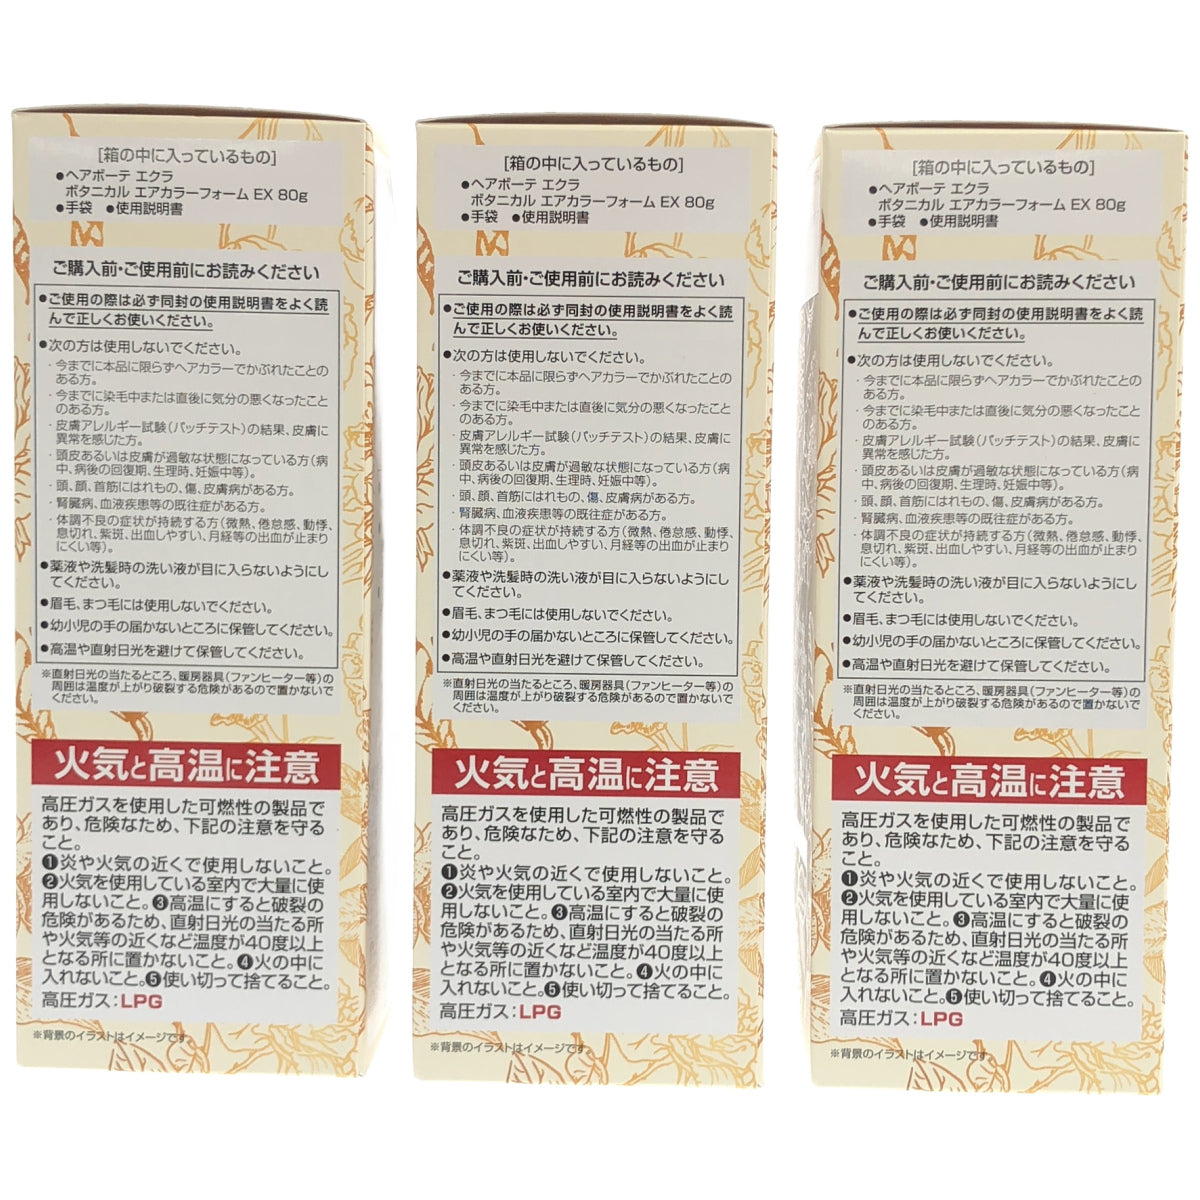 [箱の中に入っているもの]
●ヘアボーテ エクラ
ボタニカル エアカラーフォーム EX 80g
●手袋 ●使用説明書
ご購入前・ご使用前にお読みください
●ご使用の際は必ず同封の使用説明書をよく読
んで正しくお使いください。
●次の方は使用しないでください。
・今までに本品に限らずヘアカラーでかぶれたことの
ある方。
・今までに染毛中または直後に気分の悪くなったこと
のある方。
・皮膚アレルギー試験(パッチテスト)の結果、皮膚に
異常を感じた方。
・頭皮あるいは皮膚が過敏な状態になっている方(病
中、病後の回復期、生理時、妊娠中等)。
・頭、顔、首筋にはれもの、傷、皮膚病がある方。
・腎臓病、血液疾患等の既往症がある方。
・体調不良の症状が持続する方(微熱、倦怠感、動悸、
息切れ、紫斑、出血しやすい、月経等の出血が止まり
にくい等)。
●薬液や洗髪時の洗い液が目に入らないようにし
てください。
●眉毛、まつ毛には使用しないでください。
●幼小児の手の届かないところに保管してください。
●高温や直射日光を避けて保管してください。
※直射日光の当たるところ、暖房器具(ファンヒーター等)の
周囲は温度が上がり破裂する危険があるので置かないで
ください。
火気と高温に注意
高圧ガスを使用した可燃性の製品で
あり、危険なため、下記の注意を守る
こと。
❶炎や火気の近くで使用しないこと。
❷火気を使用している室内で大量に使
用しないこと。❸高温にすると破裂の
危険があるため、直射日光の当たる所
や火気等の近くなど温度が40度以上
となる所に置かないこと。❹火の中に
入れないこと。❺使い切って捨てること。
高圧ガス:LPG
※背景のイラストはイメージです。
[箱の中に入っているもの]
●ヘアボーテ エクラ
ボタニカル エアカラーフォーム EX 80g
●手袋 ●使用説明書
ご購入前・ご使用前にお読みください
●ご使用の際は必ず同封の使用説明書をよく読
んで正しくお使いください。
●次の方は使用しないでください。
・今までに本品に限らずヘアカラーでかぶれたことの
ある方。
・今までに染毛中または直後に気分の悪くなったこと
のある方。
・皮膚アレルギー試験(パッチテスト)の結果、皮膚に
異常を感じた方。
・頭皮あるいは皮膚が過敏な状態になっている方(病
中、病後の回復期、生理時、妊娠中等)。
・頭、顔、首筋にはれもの、傷、皮膚病がある方。
・腎臓病、血液疾患等の既往症がある方。
・体調不良の症状が持続する方(微熱、倦怠感、動悸、
息切れ、紫斑、出血しやすい、月経等の出血が止まり
にくい等)。
●薬液や洗髪時の洗い液が目に入らないようにし
てください。
●眉毛、まつ毛には使用しないでください。
●幼小児の手の届かないところに保管してください。
●高温や直射日光を避けて保管してください。
※直射日光の当たるところ、暖房器具(ファンヒーター等)の
周囲は温度が上がり破裂する危険があるので置かないで
ください。
火気と高温に注意
高圧ガスを使用した可燃性の製品で
あり、危険なため、下記の注意を守る
こと。
❶炎や火気の近くで使用しないこと。
❷火気を使用している室内で大量に使
用しないこと。❸高温にすると破裂の
危険があるため、直射日光の当たる所
や火気等の近くなど温度が40度以上
となる所に置かないこと。❹火の中に
入れないこと。❺使い切って捨てること。
高圧ガス:LPG
※背景のイラストはイメージです。
[箱の中に入っているもの]
●ヘアボーテ エクラ
ボタニカル エアカラーフォーム EX 80g
●手袋 ●使用説明書
ご購入前・ご使用前にお読みください
●ご使用の際は必ず同封の使用説明書をよく読
んで正しくお使いください。
●次の方は使用しないでください。
・今までに本品に限らずヘアカラーでかぶれたことの
ある方。
・今までに染毛中または直後に気分の悪くなったこと
のある方。
・皮膚アレルギー試験(パッチテスト)の結果、皮膚に
異常を感じた方。
・頭皮あるいは皮膚が過敏な状態になっている方(病
中、病後の回復期、生理時、妊娠中等)。
・頭、顔、首筋にはれもの、傷、皮膚病がある方。
・腎臓病、血液疾患等の既往症がある方。
・体調不良の症状が持続する方(微熱、倦怠感、動悸、
息切れ、紫斑、出血しやすい、月経等の出血が止まり
にくい等)。
●薬液や洗髪時の洗い液が目に入らないようにし
てください。
●眉毛、まつ毛には使用しないでください。
●幼小児の手の届かないところに保管してください。
●高温や直射日光を避けて保管してください。
※直射日光の当たるところ、暖房器具(ファンヒーター等)の
周囲は温度が上がり破裂する危険があるので置かないで
ください。
火気と高温に注意
高圧ガスを使用した可燃性の製品で
あり、危険なため、下記の注意を守る
こと。
❶炎や火気の近くで使用しないこと。
❷火気を使用している室内で大量に使
用しないこと。❸高温にすると破裂の
危険があるため、直射日光の当たる所
や火気等の近くなど温度が40度以上
となる所に置かないこと。❹火の中に
入れないこと。❺使い切って捨てること。
高圧ガス:LPG
※背景のイラストはイメージです。